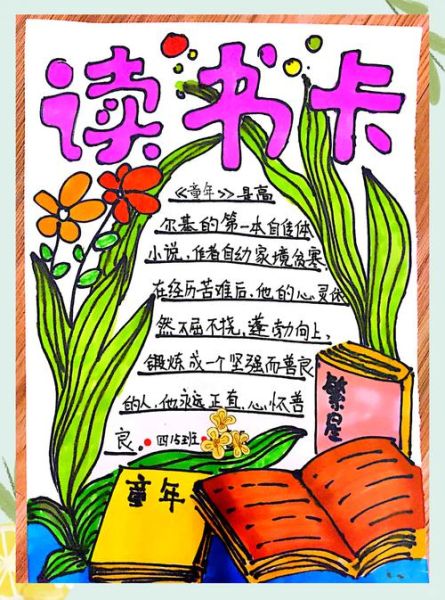 读书卡
《童年》是高
尔基的第一本自佳体
小说,作者自幼家境贫寒,
在经历苦难后,他的心灵依
然不屈不挠,蓬勃向上,
锻炼成一个坚强而善良
的人,他永远正直,心怀善
良。四15班
繁星
童年